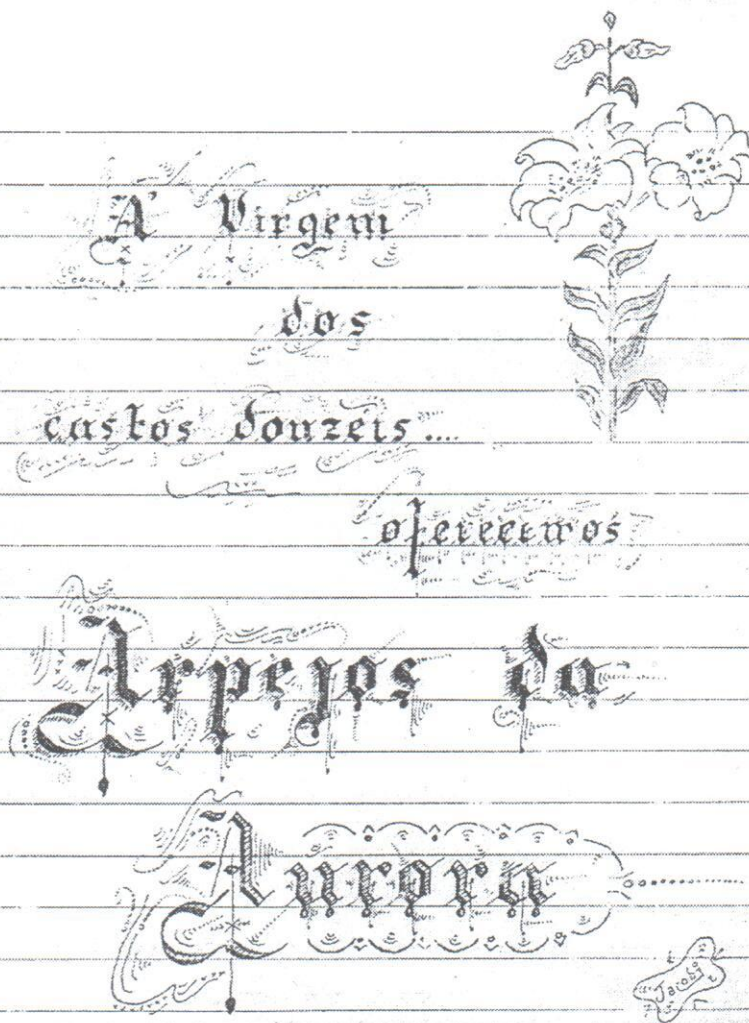 À Virgem
dos
castos donzéis....
oferecemos
Arpejos da
Aurora
Jacoby